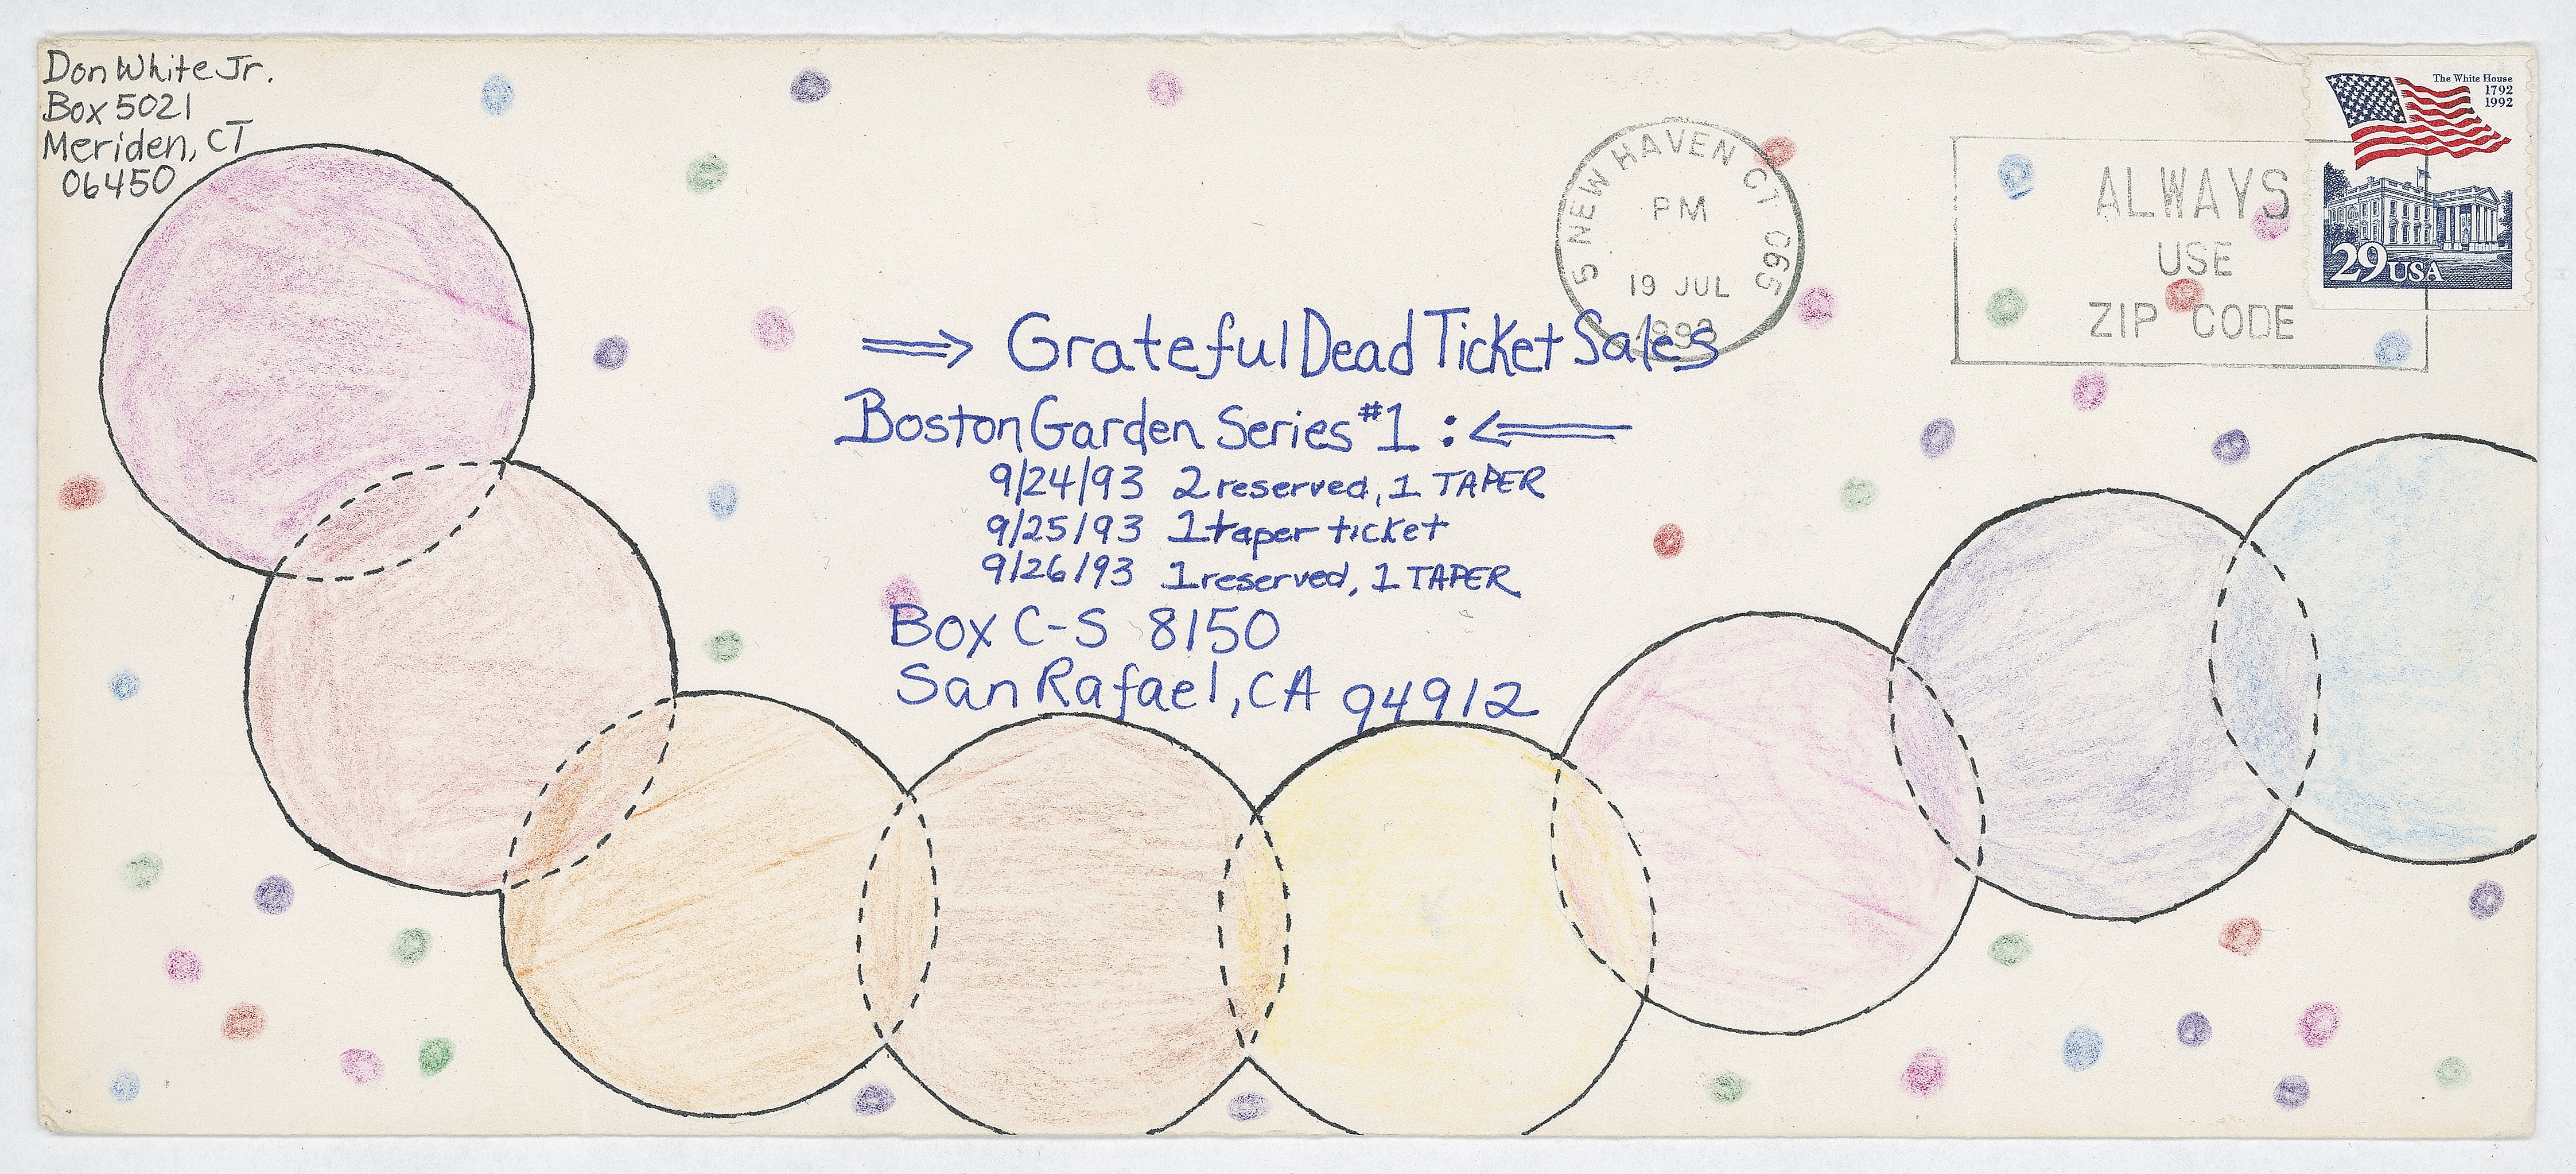 Don White Jr.
Box 5021
Meriden, CT
06450
S NEW HAVEN CT 065
PM
19 JUL
1993
ALWAYS
USE
ZIP CODE
The White House
1792
1992
29 USA
⇒ Grateful Dead Ticket Sales
Boston Garden Series #1 : ⇐
9/24/93 2 reserved, 1 TAPER
9/25/93 1 taper ticket
9/26/93 1 reserved, 1 TAPER
Box C-S 8150
San Rafael, CA 94912